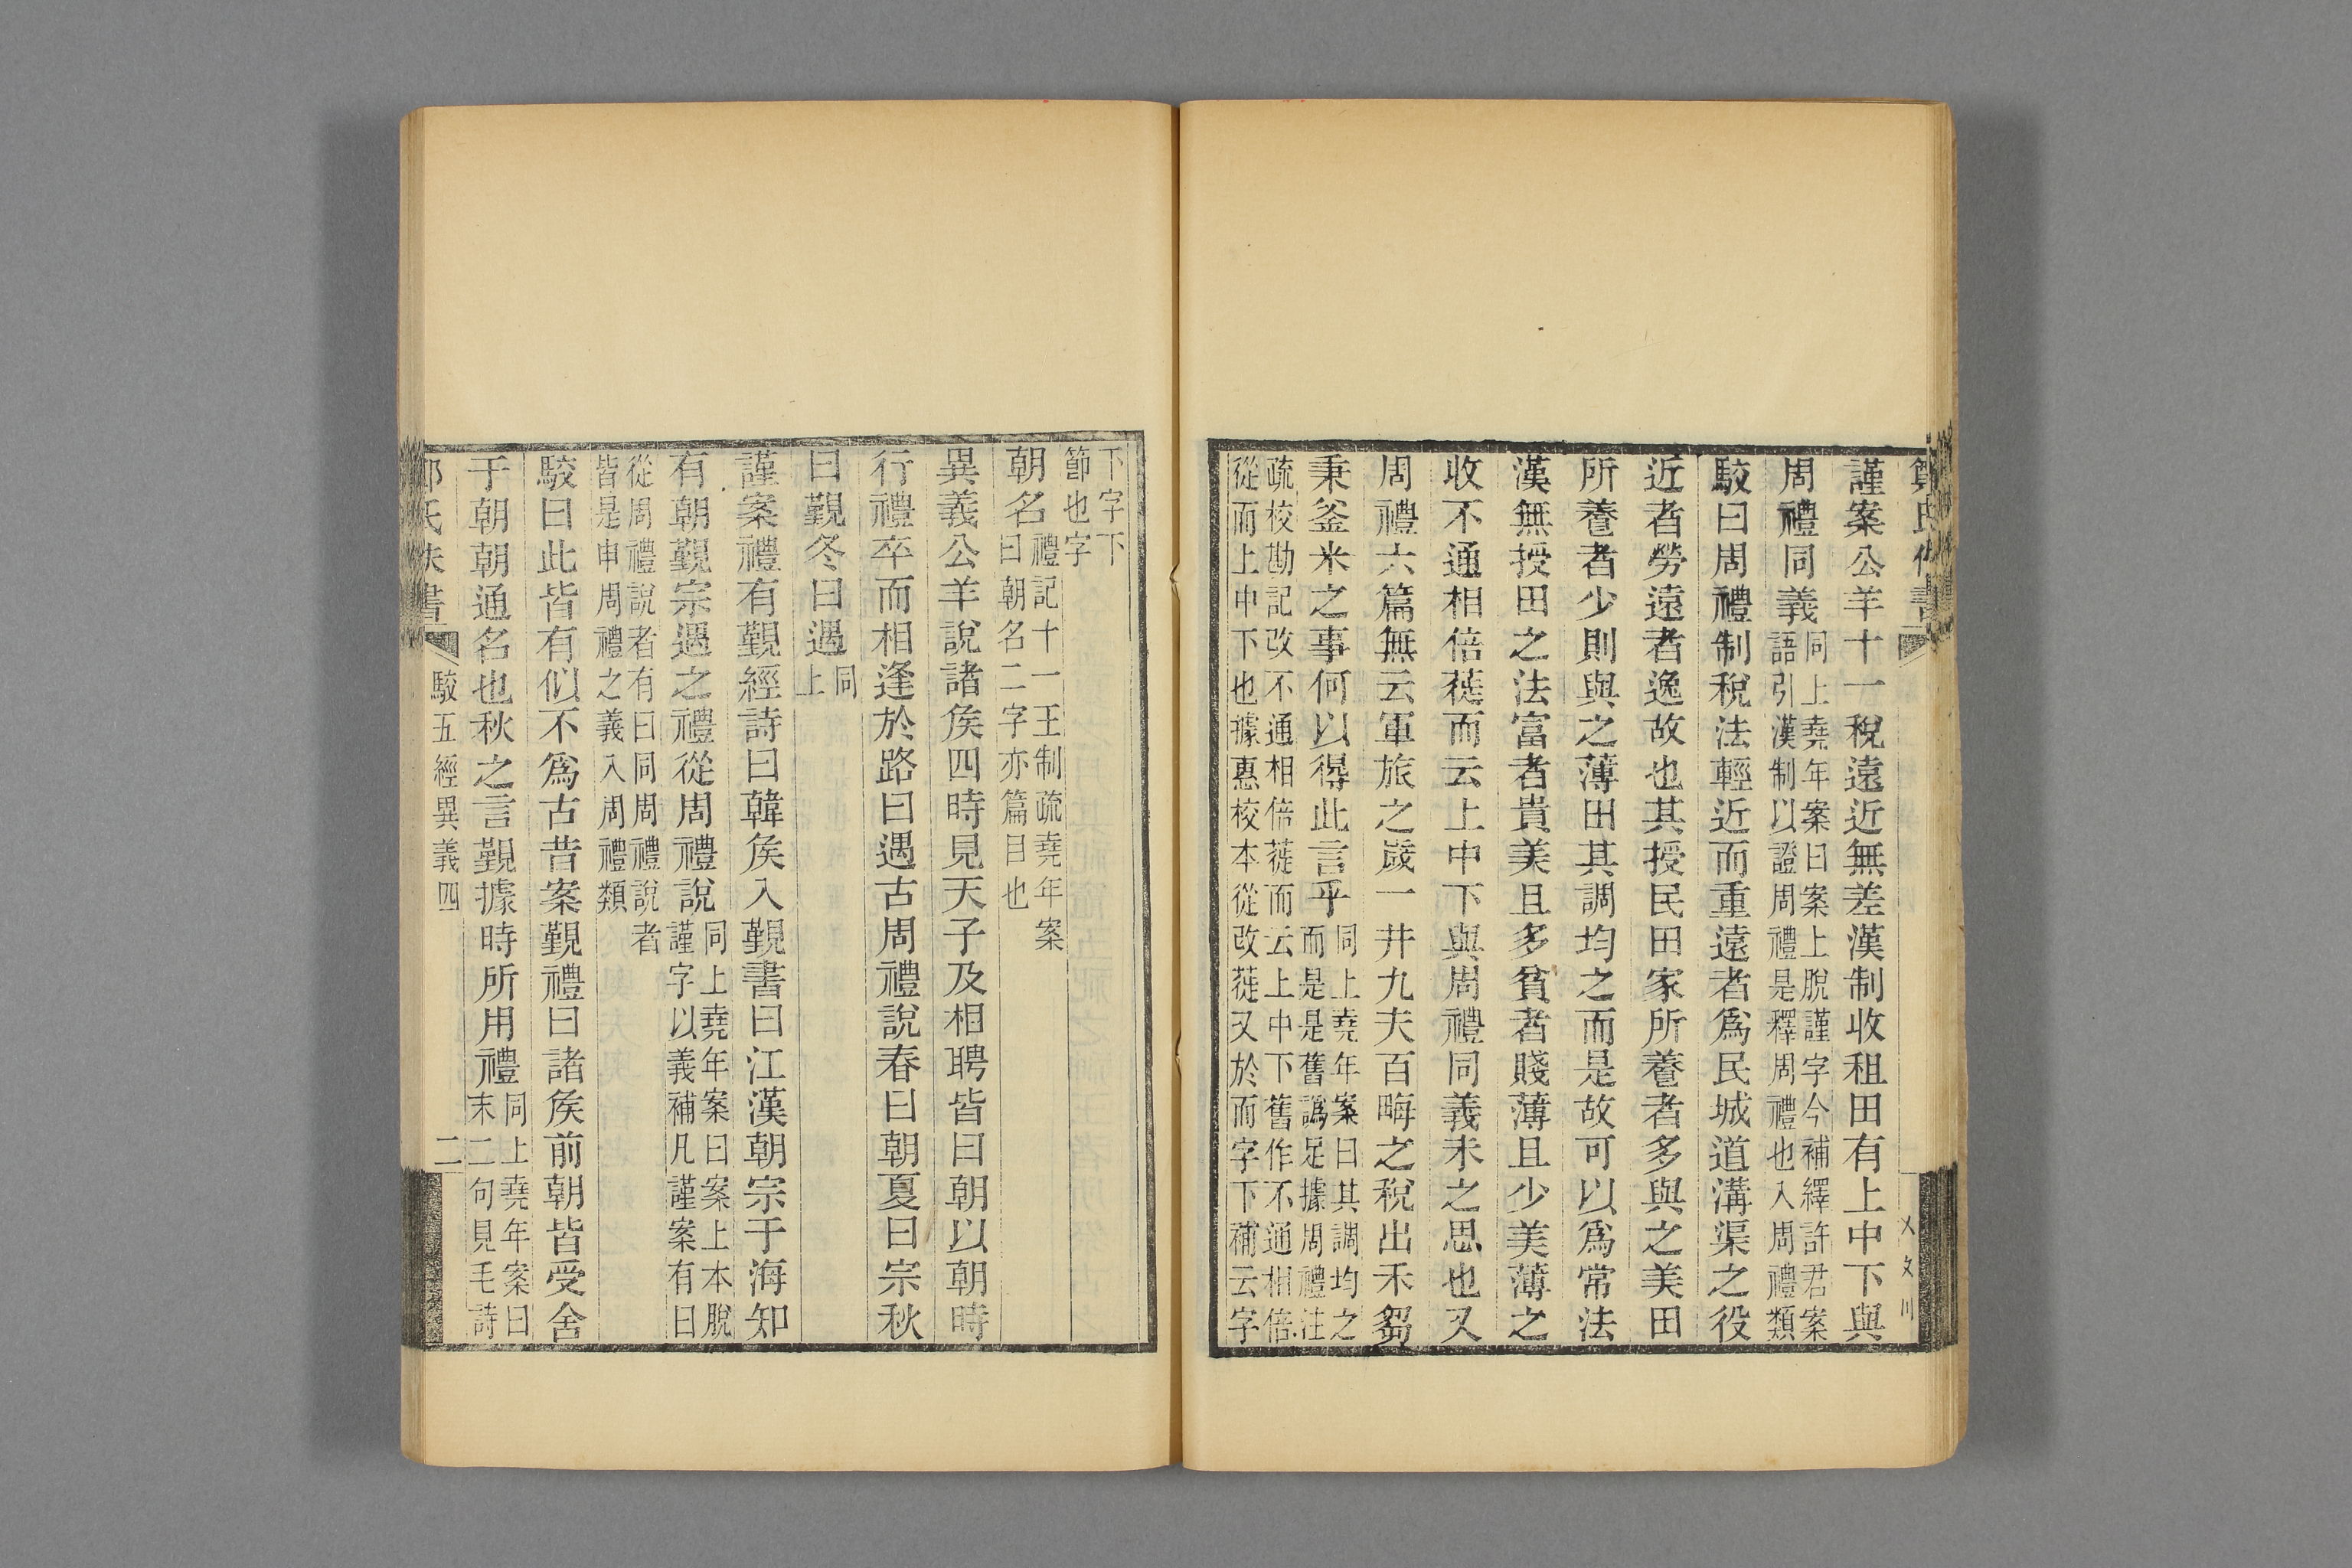 謹案公羊十一稅遠近無差漢制收租田有上中下與
周禮同義同上堯年案曰案上脫謹字今補繹許君案
語引漢制以證周禮是釋周禮也入周禮類
駮曰周禮制稅法輕近而重遠者爲民城道溝渠之役
近者勞遠者逸故也其授民田家所養者多與之美田
所養者少則與之薄田其調均之而是故可以爲常法
漢無授田之法富者貴美且多貧者賤薄且少美薄之
收不通相倍蓰而云上中下與周禮同義未之思也又
周禮六篇無云軍旅之歲一井九夫百畮之稅出禾芻
秉釜米之事何以得此言乎同上堯年案曰其調均之
而是是舊譌足據周禮注
疏校勘記改不通相倍蓰而云上中下舊作不通相倍
從而上中下也據惠校本從改蓰又於而字下補云字
下字下
節也字
朝名禮記十一王制疏堯年案
曰朝名二字亦篇目也
異義公羊說諸侯四時見天子及相聘皆曰朝以朝時
行禮卒而相逢於路曰遇古周禮說春曰朝夏曰宗秋
曰覲冬曰遇同上
謹案禮有覲經詩曰韓侯入覲書曰江漢朝宗于海知
有朝覲宗遇之禮從周禮說同上堯年案曰案上本脫
謹字以義補凡謹案有曰
從周禮說者有曰同周禮說者
皆是申周禮之義入周禮類
駮曰此皆有似不爲古昔案覲禮曰諸侯前朝皆受舍
于朝朝通名也秋之言覲據時所用禮同上堯年案曰
末二句見毛詩
駮五經異義四
二